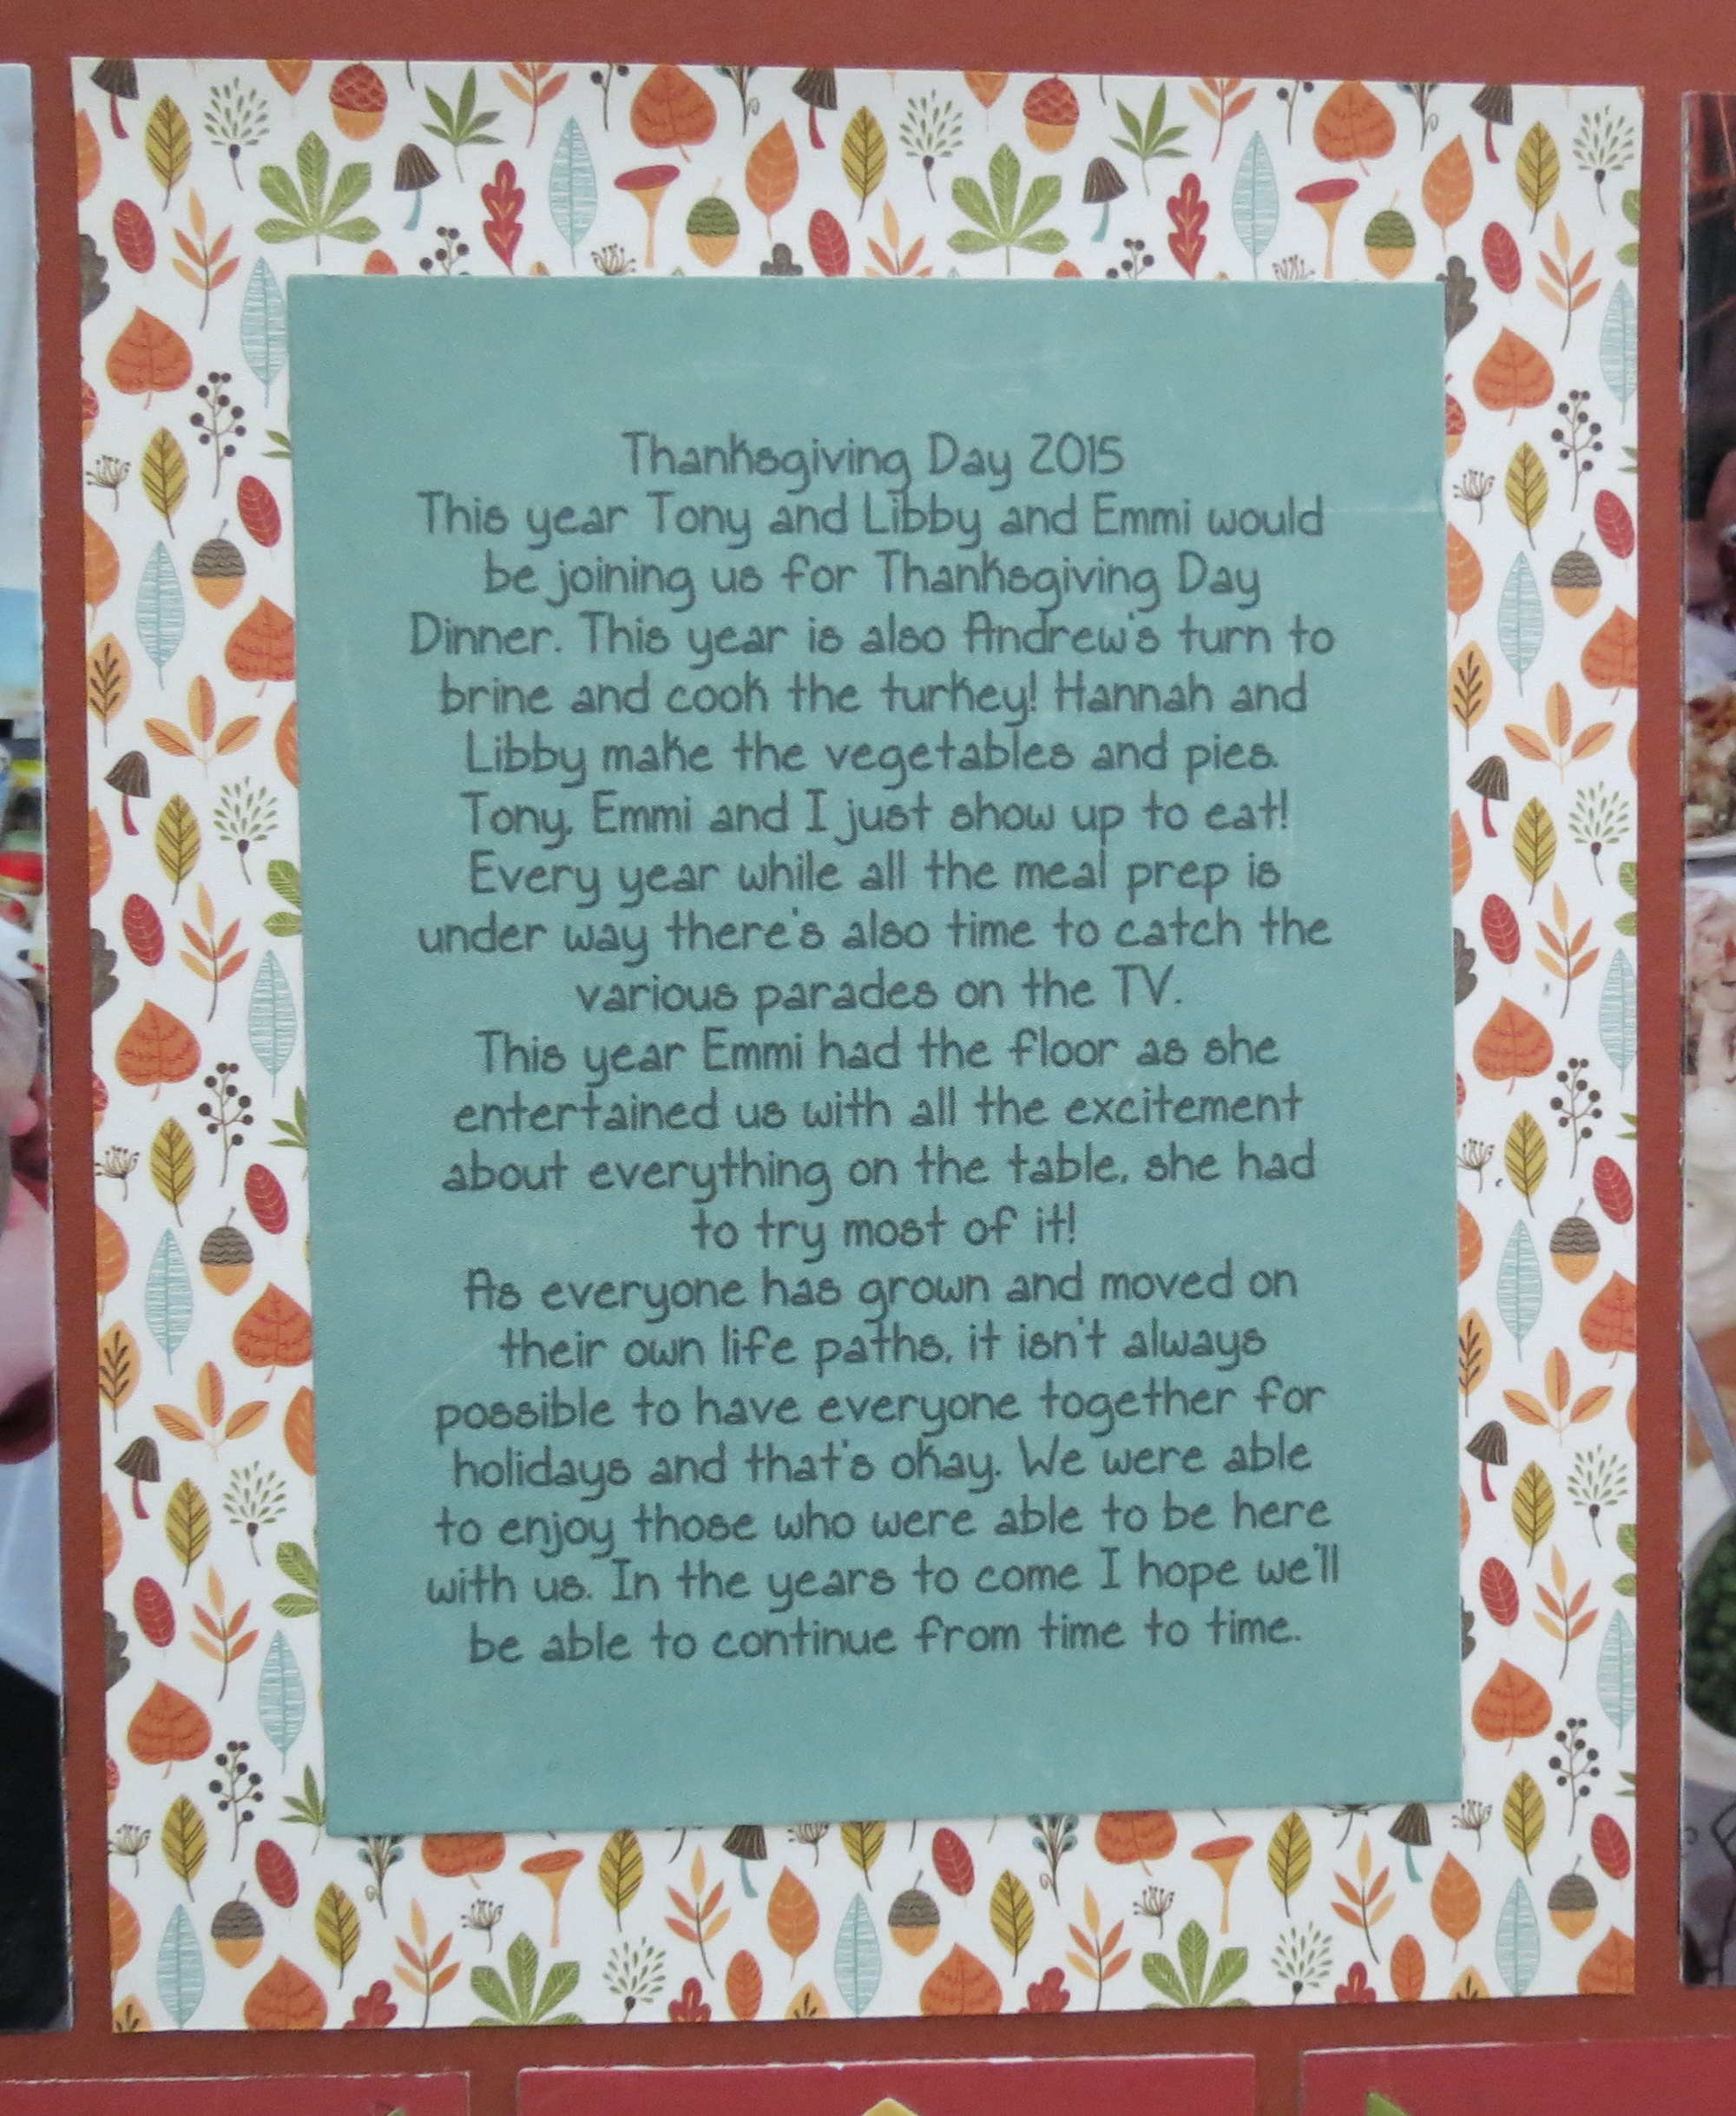 Thanksgiving Day 2015
This year Tony and Libby and Emmi would
be joining us for Thanksgiving Day
Dinner. This year is also Andrew's turn to
brine and cook the turkey! Hannah and
Libby make the vegetables and pies.
Tony, Emmi and I just show up to eat!
Every year while all the meal prep is
under way there's also time to catch the
various parades on the TV.
This year Emmi had the floor as she
entertained us with all the excitement
about everything on the table, she had
to try most of it!
As everyone has grown and moved on
their own life paths, it isn't always
possible to have everyone together for
holidays and that's okay. We were able
to enjoy those who were able to be here
with us. In the years to come I hope we'll
be able to continue from time to time.